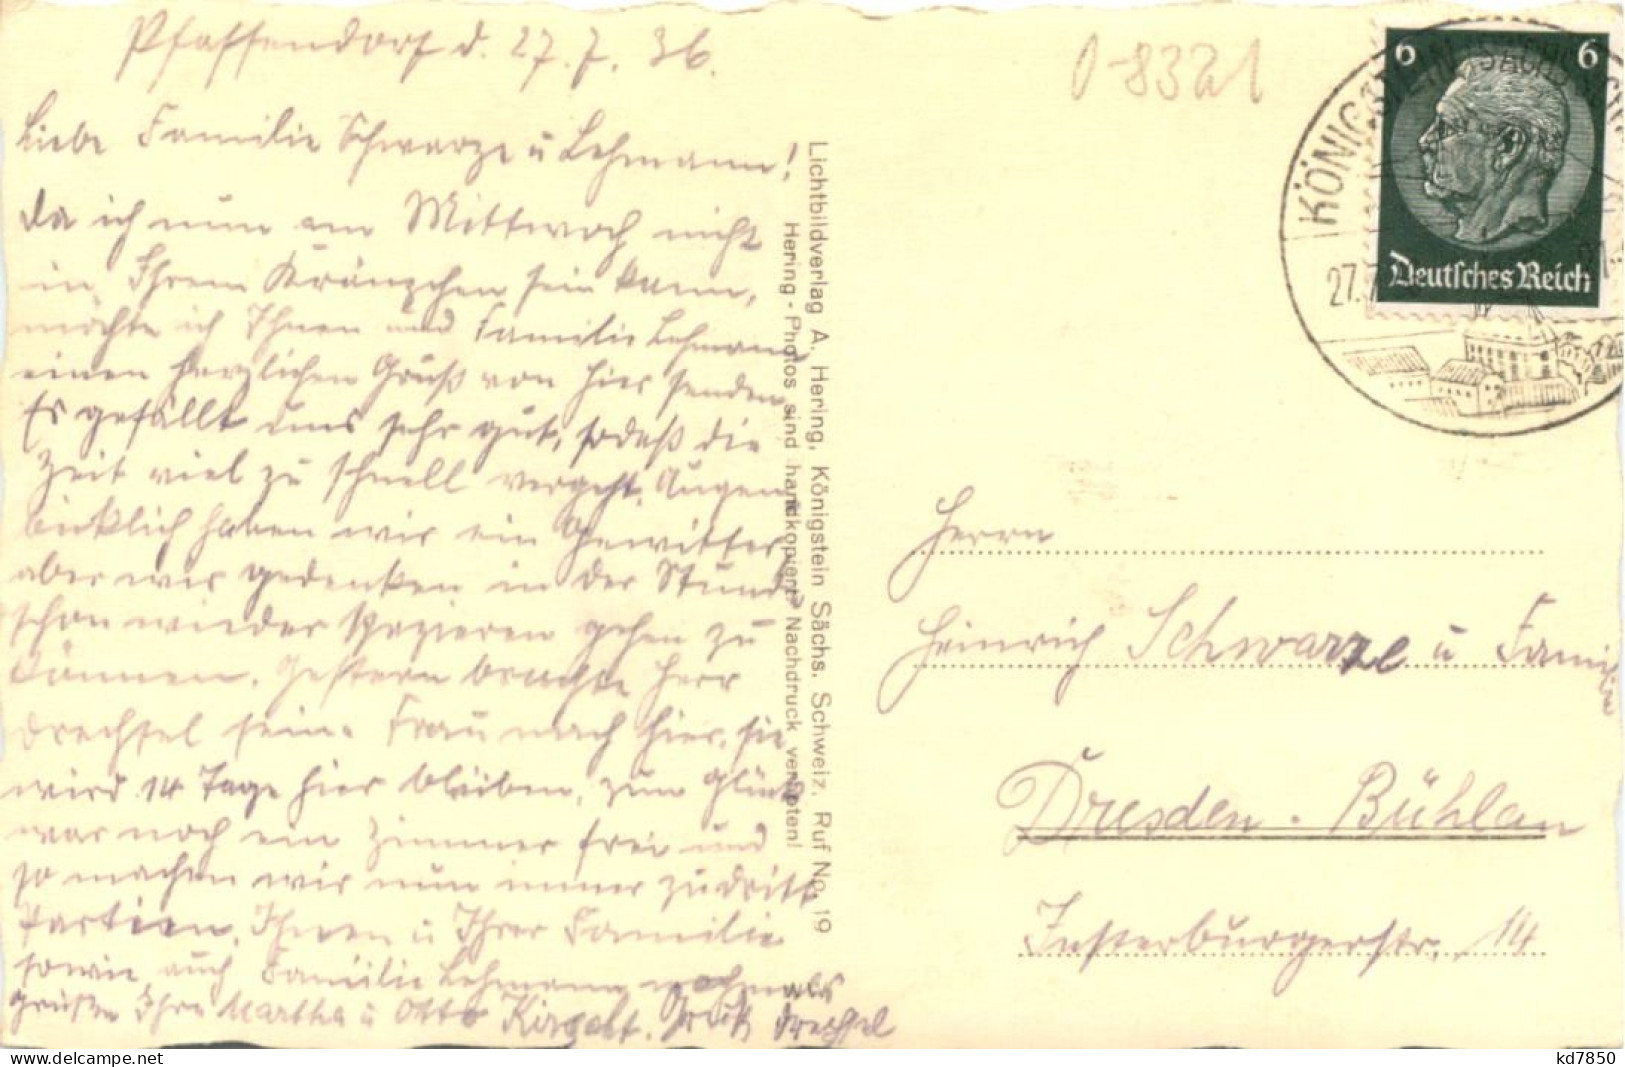 Pfaffendorf d. 27. 7. 36.
Liebe Familie Schwarze u Lehmann!
Da ich nun am Mittwoch nicht
in Ihrem Kränzchen sein kann,
möchte ich Ihnen und Familie Lehmann
einen herzlichen Gruß von hier senden.
Es gefällt uns sehr gut, sodaß die
Zeit viel zu schnell vergeht. Augen
blicklich haben wir ein Gewitter
aber wir gedenken in der Stunde
schon wieder spazieren gehen zu
können. Gestern brachte Herr
Drechsel seine Frau nach hier, sie
wird 14 Tage hier bleiben, zum Glück
war noch ein Zimmer frei und
so machen wir nun immer zudritt
Partien. Ihnen u Ihrer Familie
sowie auch Familie Lehmann nochmals
grüßen Ihre Martha u Otto Gruß Drechsel
Lichtbildverlag A. Hering, Königstein Sächs. Schweiz. Ruf No. 19
Hering-Photos sind handkopiert! Nachdruck verboten!
0-8321
6 6
Deutsches Reich
KÖNIGSTEIN (SÄCHS
27.7
Herrn
Heinrich Schwarze u Familie
Dresden. Bühlau
Insterburgerstr. 14
kd7850